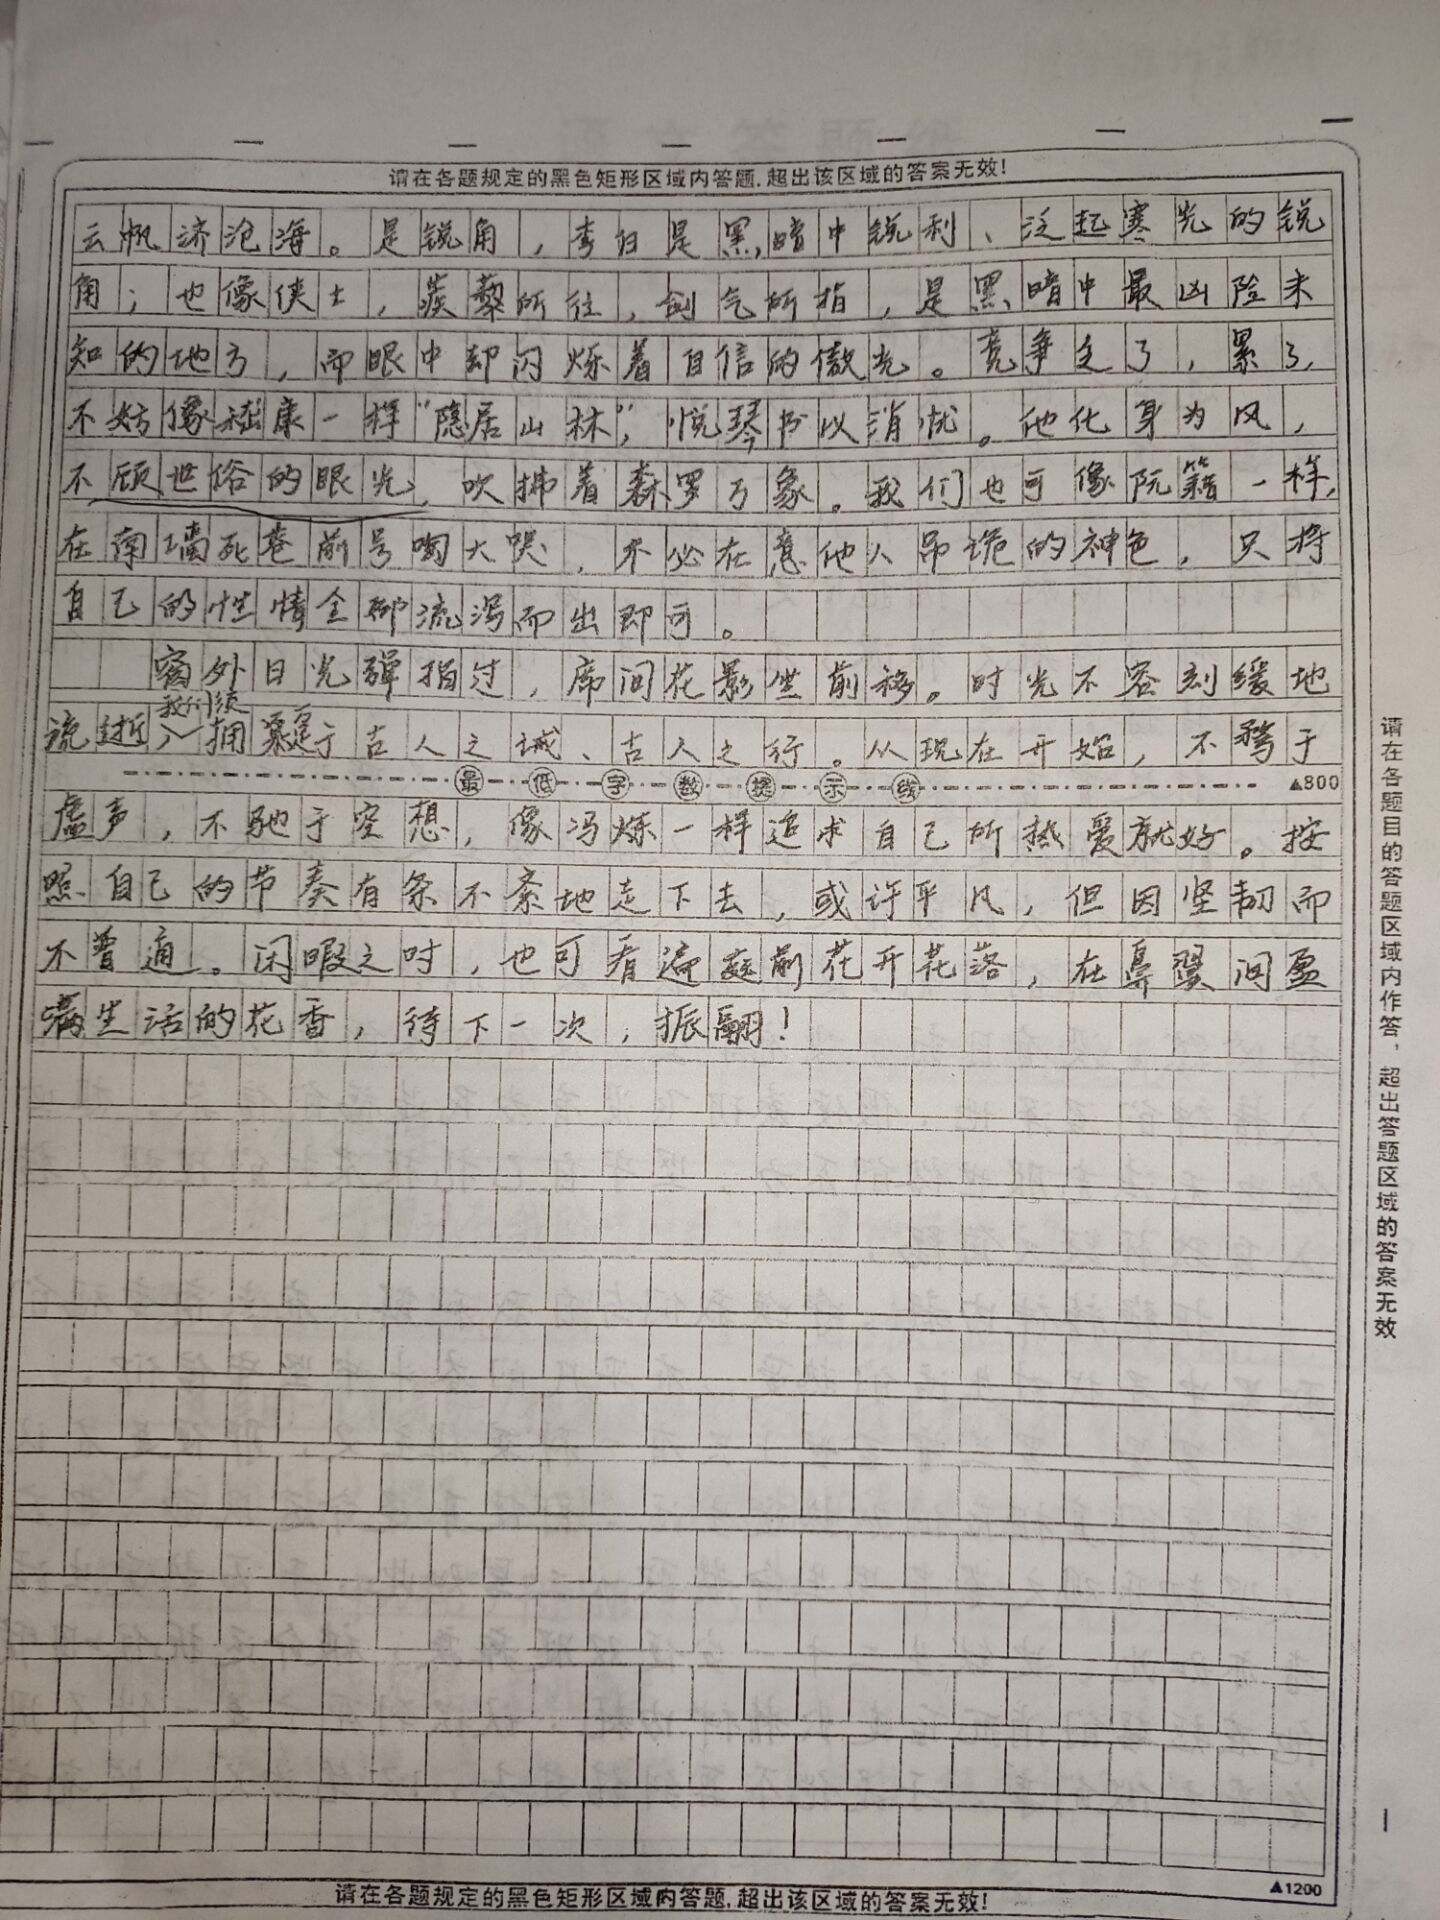 请在各题规定的黑色矩形区域内答题,超出该区域的答案无效!
云帆济沧海。是锐角，李白是黑暗中锐利、泛起寒光的锐
角；也像侠士，蒺藜所往，剑气所指，是黑暗中最凶险未
知的地方，而眼中却闪烁着自信的傲光。竞争乏了，累了，
不妨像嵇康一样“隐居山林”，悦琴书以消忧。他化身为风，
不顾世俗的眼光，吹拂着森罗万象。我们也可像阮籍一样，
在南墙死巷前号啕大哭，不必在意他人吊诡的神色，只将
自己的性情全部流泻而出即可。
窗外日光弹指过，席间花影坐前移。时光不容刻缓地
我们须
流逝，拥趸于古人之诚、古人之行。从现在开始，不骛于
最低字数提示线 ▲800
虚声，不驰于空想，像冯烁一样追求自己所热爱就好。按
照自己的节奏有条不紊地走下去，或许平凡，但因坚韧而
不普通。闲暇之时，也可看遍庭前花开花落，在鼻翼间盈
满生活的花香，待下一次，振翮！
▲1200
请在各题规定的黑色矩形区域内答题,超出该区域的答案无效!
请在各题目的答题区域内作答，超出答题区域的答案无效